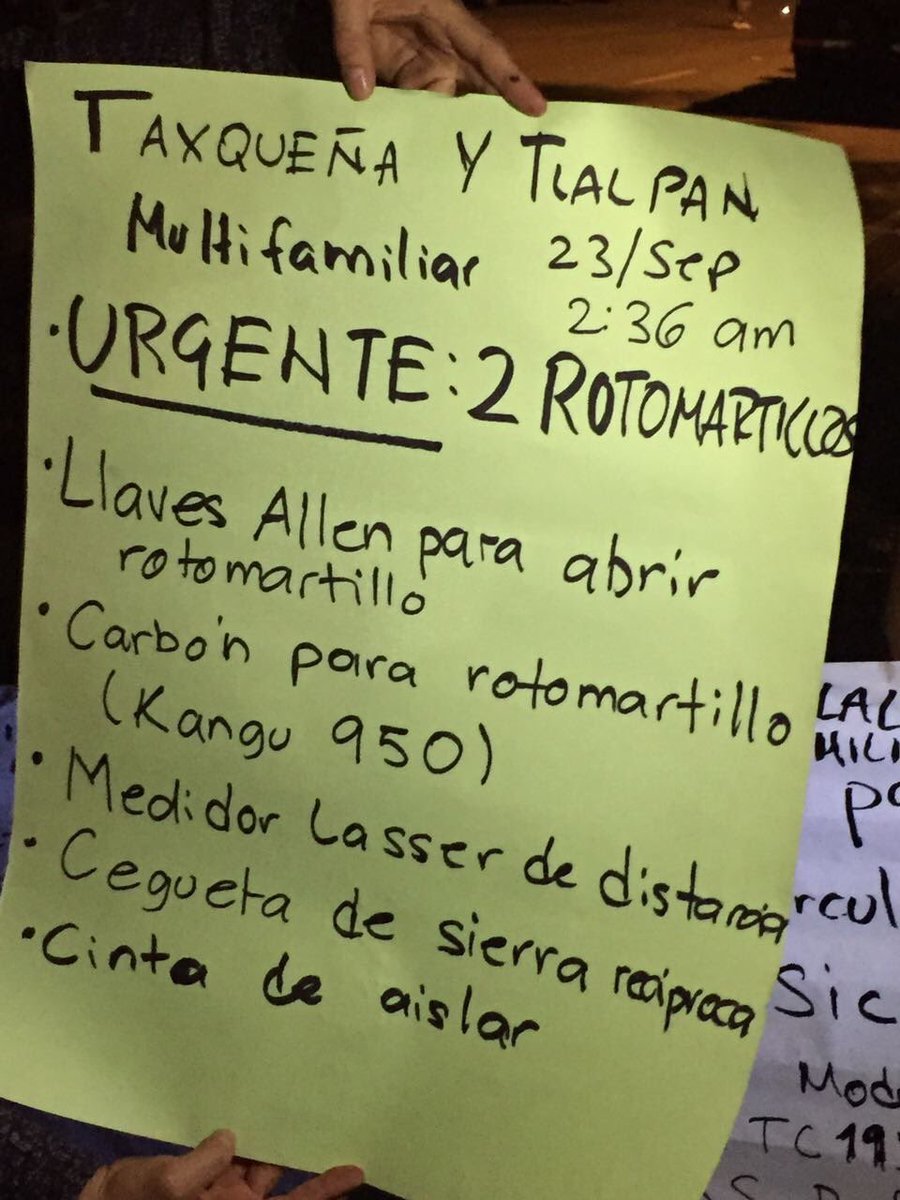 TAXQUEÑA Y TLALPAN
Multifamiliar 23/Sep
2:36 am
·URGENTE: 2 ROTOMARTILLOS
·Llaves Allen para abrir
rotomartillo
·Carbón para rotomartillo
(Kangu 950)
·Medidor Lasser de distancia
·Cegueta de sierra recíproca
·Cinta de aislar
LAL
MILI
po
rcul
Sic
Mod
TC 19